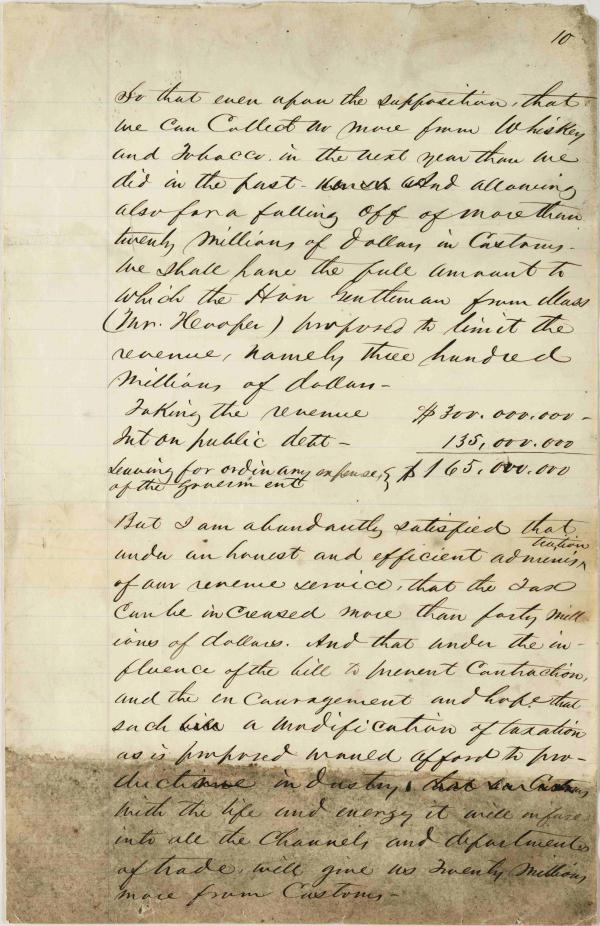 10
So that even upon the supposition, that
we can Collect no more from Whiskey
and Tobacco. in the next year than we
did in the past - And allowing
also for a falling off of more than
twenty Millions of dollars in Customs -
We shall have the full amount to
which the Hon Gentleman from Mass
(Mr. Hooper) proposed to limit the
revenue, namely three hundred
Millions of dollars -
Taking the revenue $300.000.000 -
Int on public debt - 135,000.000
Leaving for ordinary expenses } $165.000.000
of the government
But I am abundantly satisfied that
under an honest and efficient adminis^tration
of our revenue service, that the Tax
can be increased more than forty mill
ions of dollars. And that under the in-
fluence of the bill to prevent Contraction,
and the encouragement and hope that
such a modification of taxation
as is proposed would afford to pro-
ductive industry,
With the life and energy it will infuse
into all the Channels and departments
of trade, will give us Twenty Millions
more from Customs -